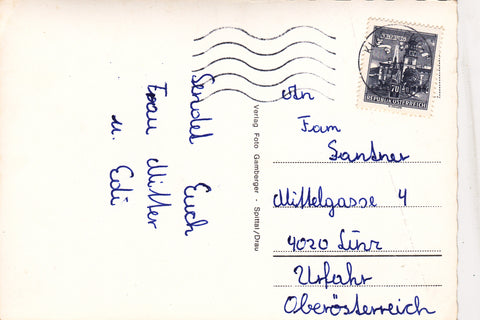 Sendet Euch
Frau Mitter
u. Edi
Verlag Foto Gamberger - Spittal/Drau
70
REPUBLIK ÖSTERREICH
An
Fam
Santner
Mittelgasse 4
4020 Linz
Urfahr
Oberösterreich